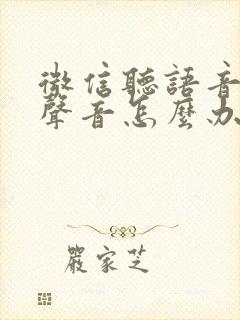 微信聽語音
聲音怎麼办
嚴家芝